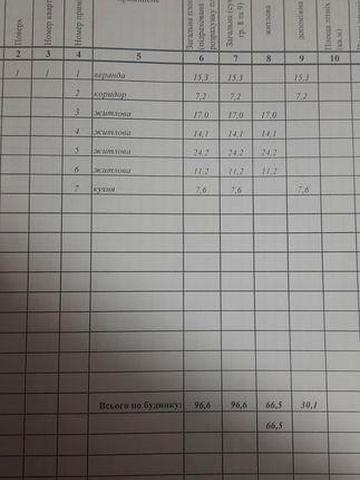 Поверх
Номер кварт
Номер прим
Загальна (су
гр. 8 та 9)
житлова
допоміжна
Площа літніх
(кв.м)
2 3 4 5 6 7 8 9 10
1 1 1 веранда 15,3 15,3 15,3
2 коридор 7,2 7,2 7,2
3 житлова 17,0 17,0 17,0
4 житлова 14,1 14,1 14,1
5 житлова 24,2 24,2 24,2
6 житлова 11,2 11,2 11,2
7 кухня 7,6 7,6 7,6
Всього по будинку: 96,6 96,6 66,5 30,1
66,5